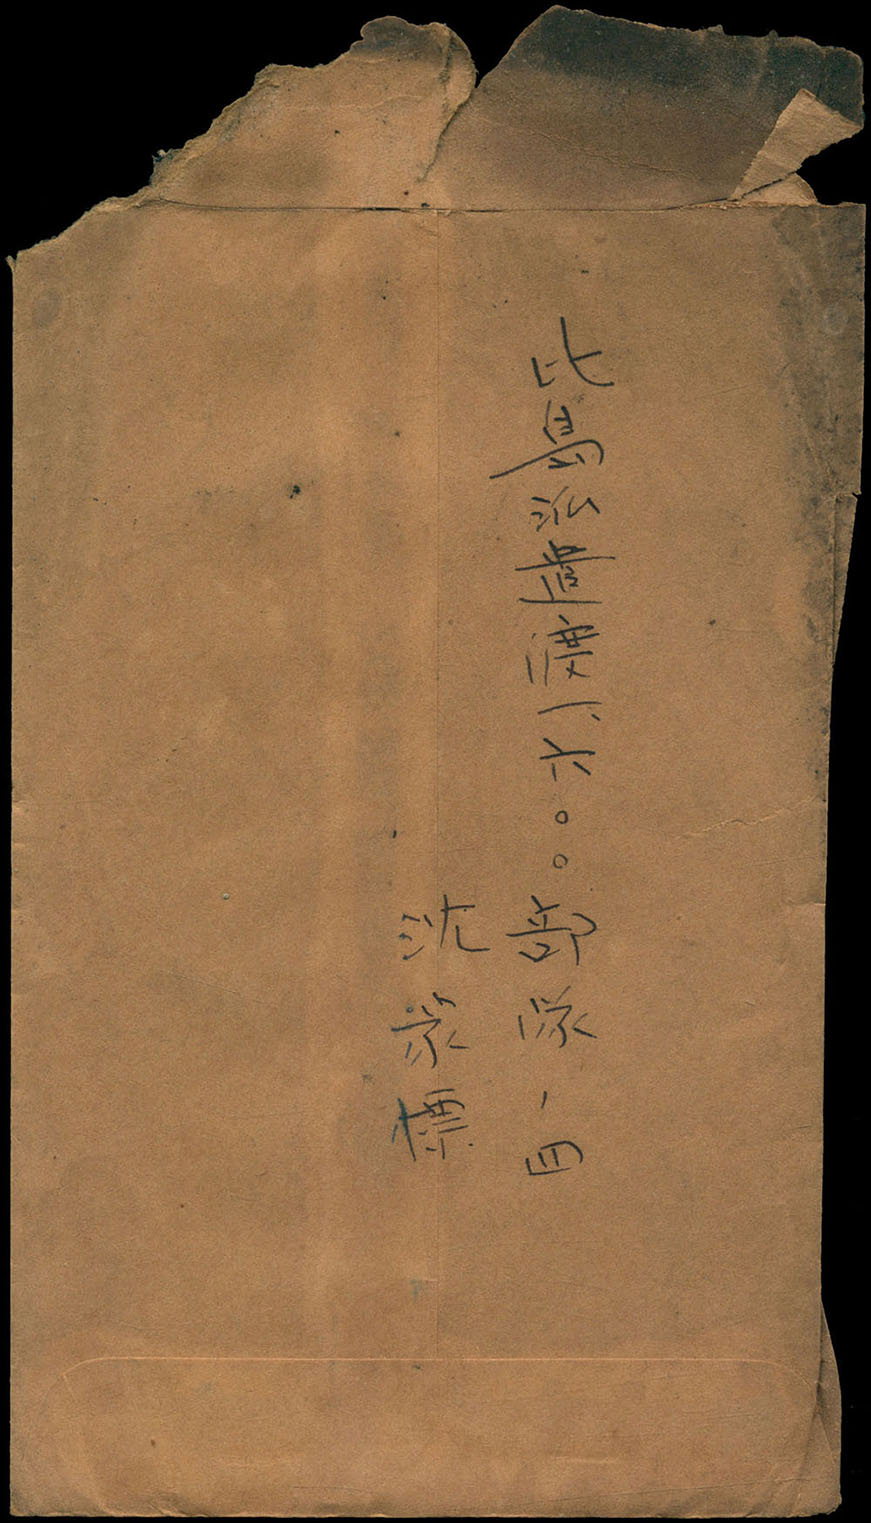 比島派遣渡一六〇〇部隊、四
沈 標